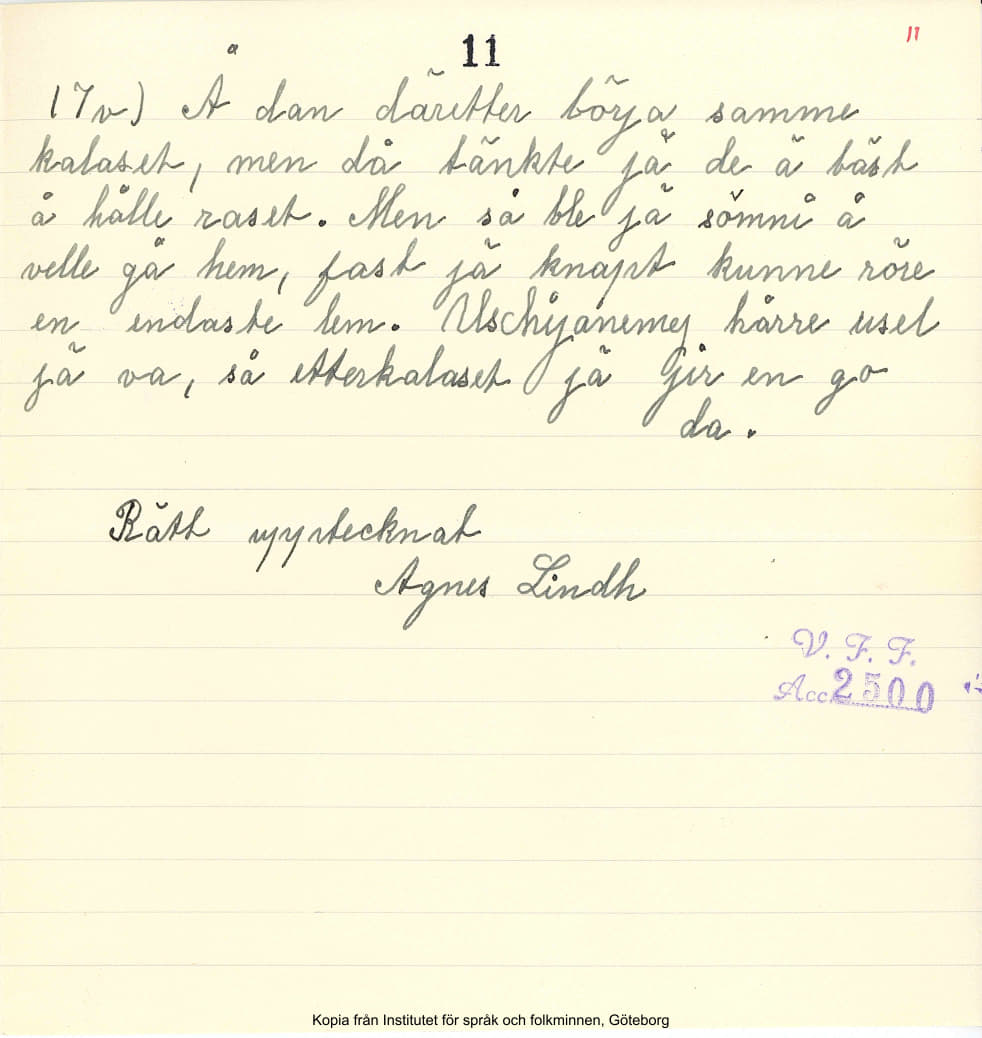 11
11
17 v) Å dan däretter börja samme
kalaset, men då tänkte jä de ä bäst
å hålle raset. Men så ble jä sömni å
velle gå hem, fast jä knapt kunne röre
en endaste lem. Uschijanemej hårre usel
jä va, så etterkalaset jä jir en go
da.
Rätt upptecknat
Agnes Lindh
V. F. F.
Acc. 2500
Kopia från Institutet för språk och folkminnen, Göteborg